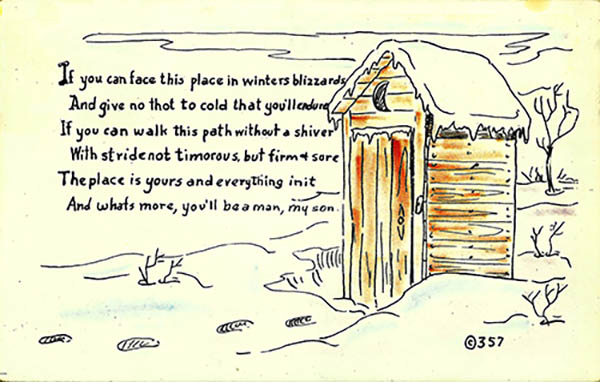 If you can face this place in winters blizzards
And give no thot to cold that you'll endure
If you can walk this path without a shiver
With stride not timorous, but firm + sore
The place is yours and everything in it
And whats more, you'll be a man, my son.
©357